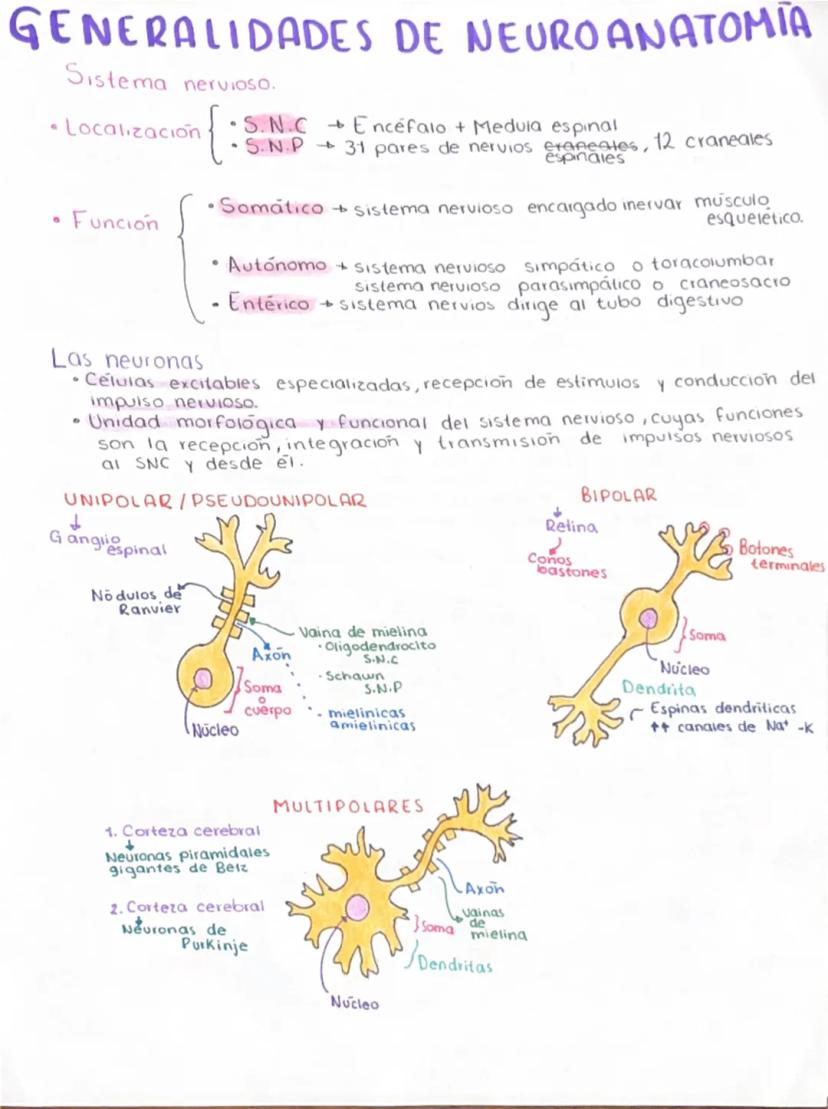 GENERALIDADES DE NEUROANATOMÍA
Sistema nervioso.
• Localización
• S.N.C → Encéfalo + Medula espinal
• S.N.P → 31 pares de nervios craneales, 12 craneales
espinales
• Función
• Somático → sistema nervioso encargado inervar músculo
esquelético.
• Autónomo → sistema nervioso simpático o toracolumbar
sistema nervioso parasimpático o craneosacro
• Entérico → sistema nervios dirige al tubo digestivo
Las neuronas
• Células excitables especializadas, recepción de estímulos y conducción del
impulso nervioso.
• Unidad morfológica y funcional del sistema nervioso, cuyas funciones
son la recepción, integración y transmisión de impulsos nerviosos
al SNC y desde él.
UNIPOLAR / PSEUDOUNIPOLAR
Ganglio
espinal
Nódulos de
Ranvier
Vaina de mielina
• Oligodendrocito
S.N.C
• Schawn
S.N.P
Axón
Soma
o
cuerpo
- mielínicas
amielínicas
Núcleo
BIPOLAR
Retina
Conos
bastones
Botones
terminales
Soma
Núcleo
Dendrita
Espinas dendríticas
↑↑ canales de Na⁺ -K
MULTIPOLARES
1. Corteza cerebral
Neuronas piramidales
gigantes de Betz
2. Corteza cerebral
Neuronas de
Purkinje
Axón
Vainas
de
mielina
Soma
Dendritas
Núcleo